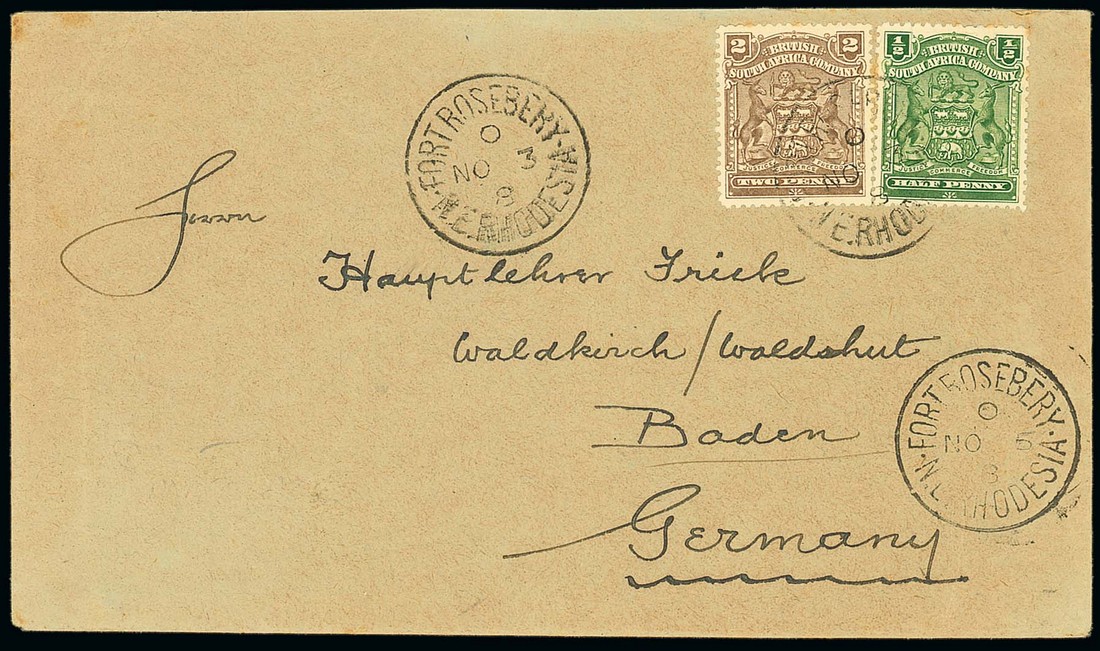 2 2
BRITISH
SOUTH AFRICA COMPANY
JUSTICE COMMERCE FREEDOM
TWO PENNY
½ ½
BRITISH
SOUTH AFRICA COMPANY
JUSTICE COMMERCE FREEDOM
HALF PENNY
FORT ROSEBERY
O
NO 3
8
N.E.RHODESIA
O
NO
8
N.E.RHOD
Herrn
Hauptlehrer Frick
Waldkirch/Waldshut
Baden
Germany
FORT ROSEBERY
O
NO 5
8
N.E.RHODESIA